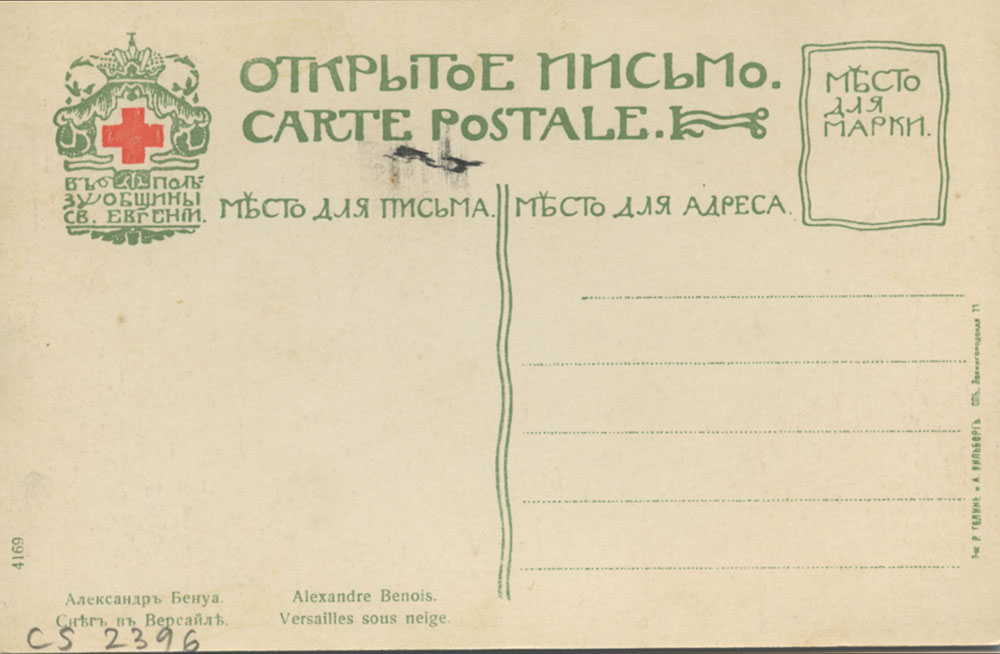 ОТКРЫТОЕ ПИСЬМО.
CARTE POSTALE.
МѢСТО
ДЛЯ
МАРКИ.
ВЪ ПОЛЬ
ЗУ ОБЩИНЫ
СВ. ЕВГЕНІИ.
МѢСТО ДЛЯ ПИСЬМА.
МѢСТО ДЛЯ АДРЕСА.
Р. ГОЛИКЕ и А. ВИЛЬБОРГЪ. СПБ. Звенигородская 11.
4169.
Александръ Бенуа.
Снѣгъ въ Версайлѣ.
Alexandre Benois.
Versailles sous neige.
CS 2396